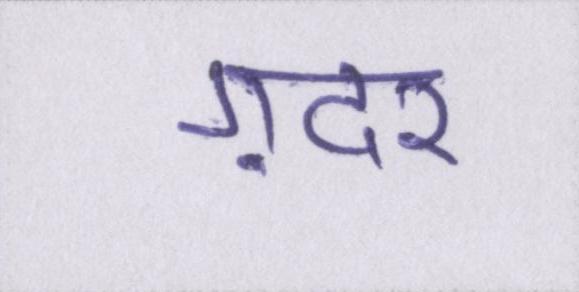 ग़दर